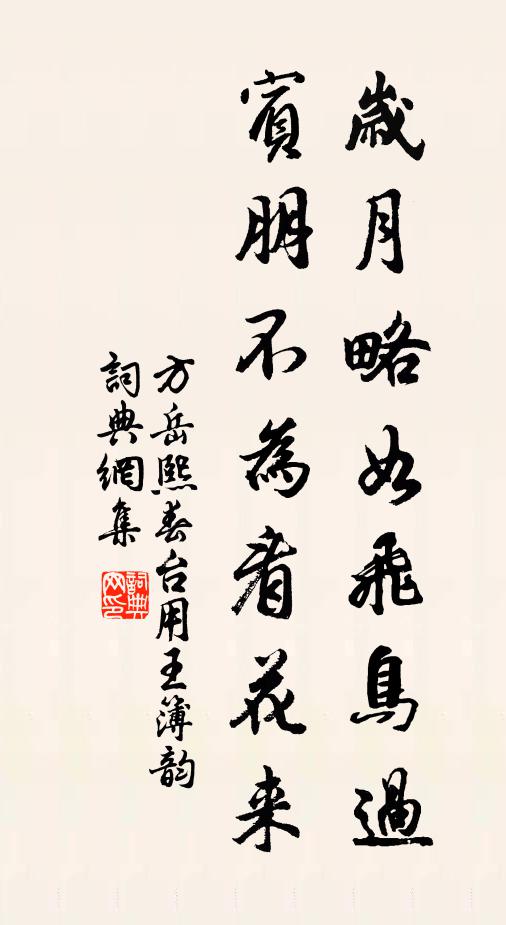 歲月略如飛鳥過
賓朋不為看花来
方岳熙春台用王簿韵
詞典網集
詞典
网印